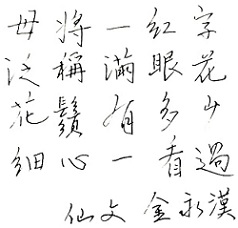 毋將一紅字
泛稱滿眼花
花鬚有多少
細心一看過
仙文 金永漢